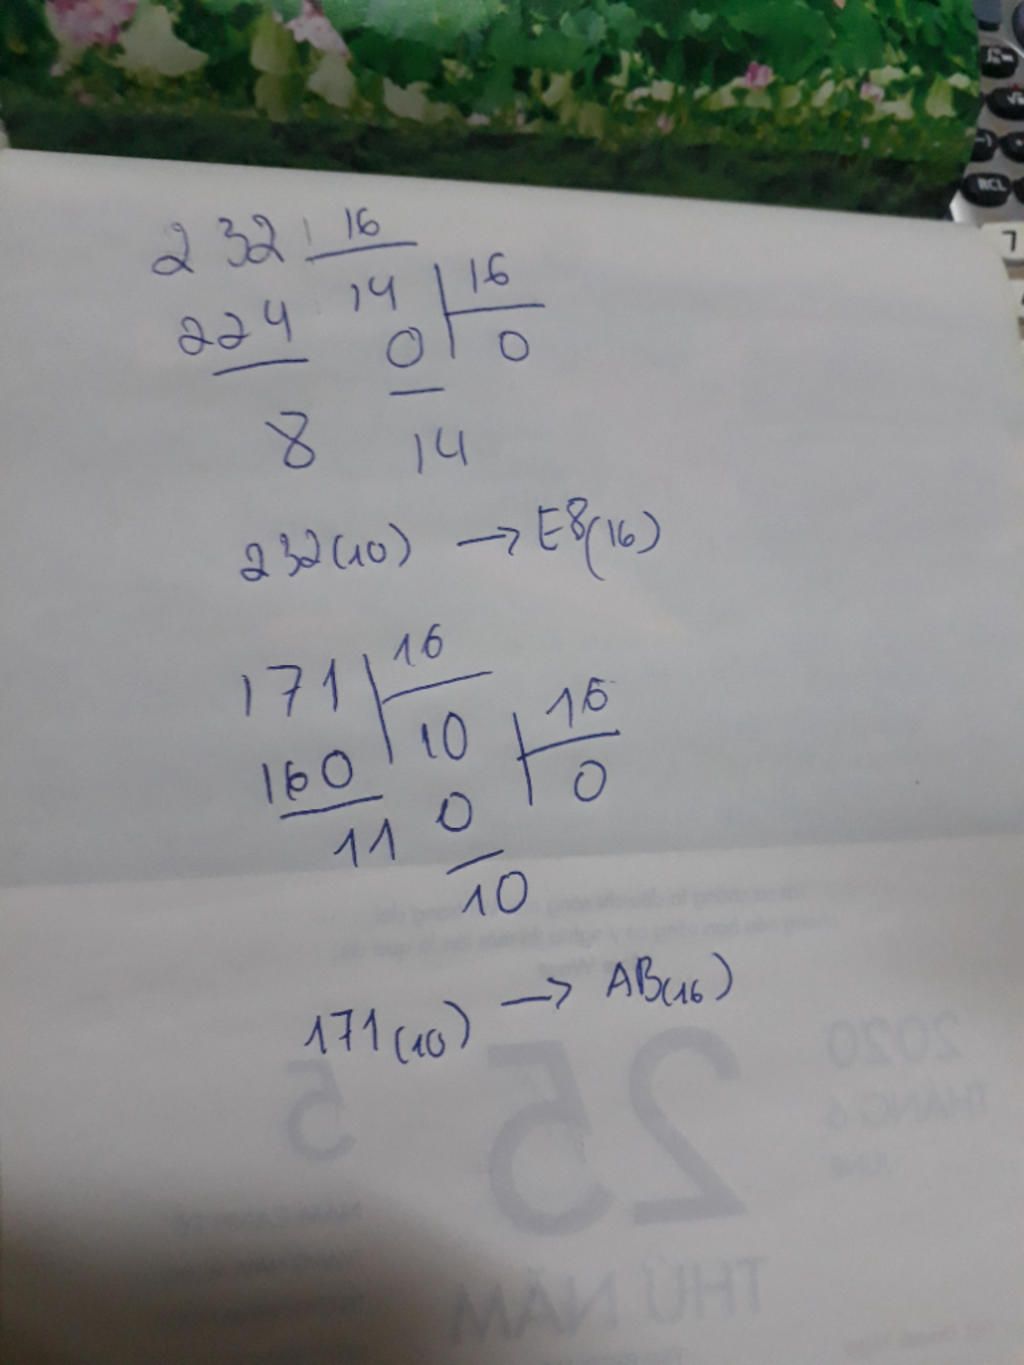 232 16
224 14 16
0 0
8 14
232(10) → E8(16)
171 16
160 10 16
11 0 0
10
171(10) → AB(16)
2020
THÁNG 6
25
5
THỨ NĂM
RCL
7